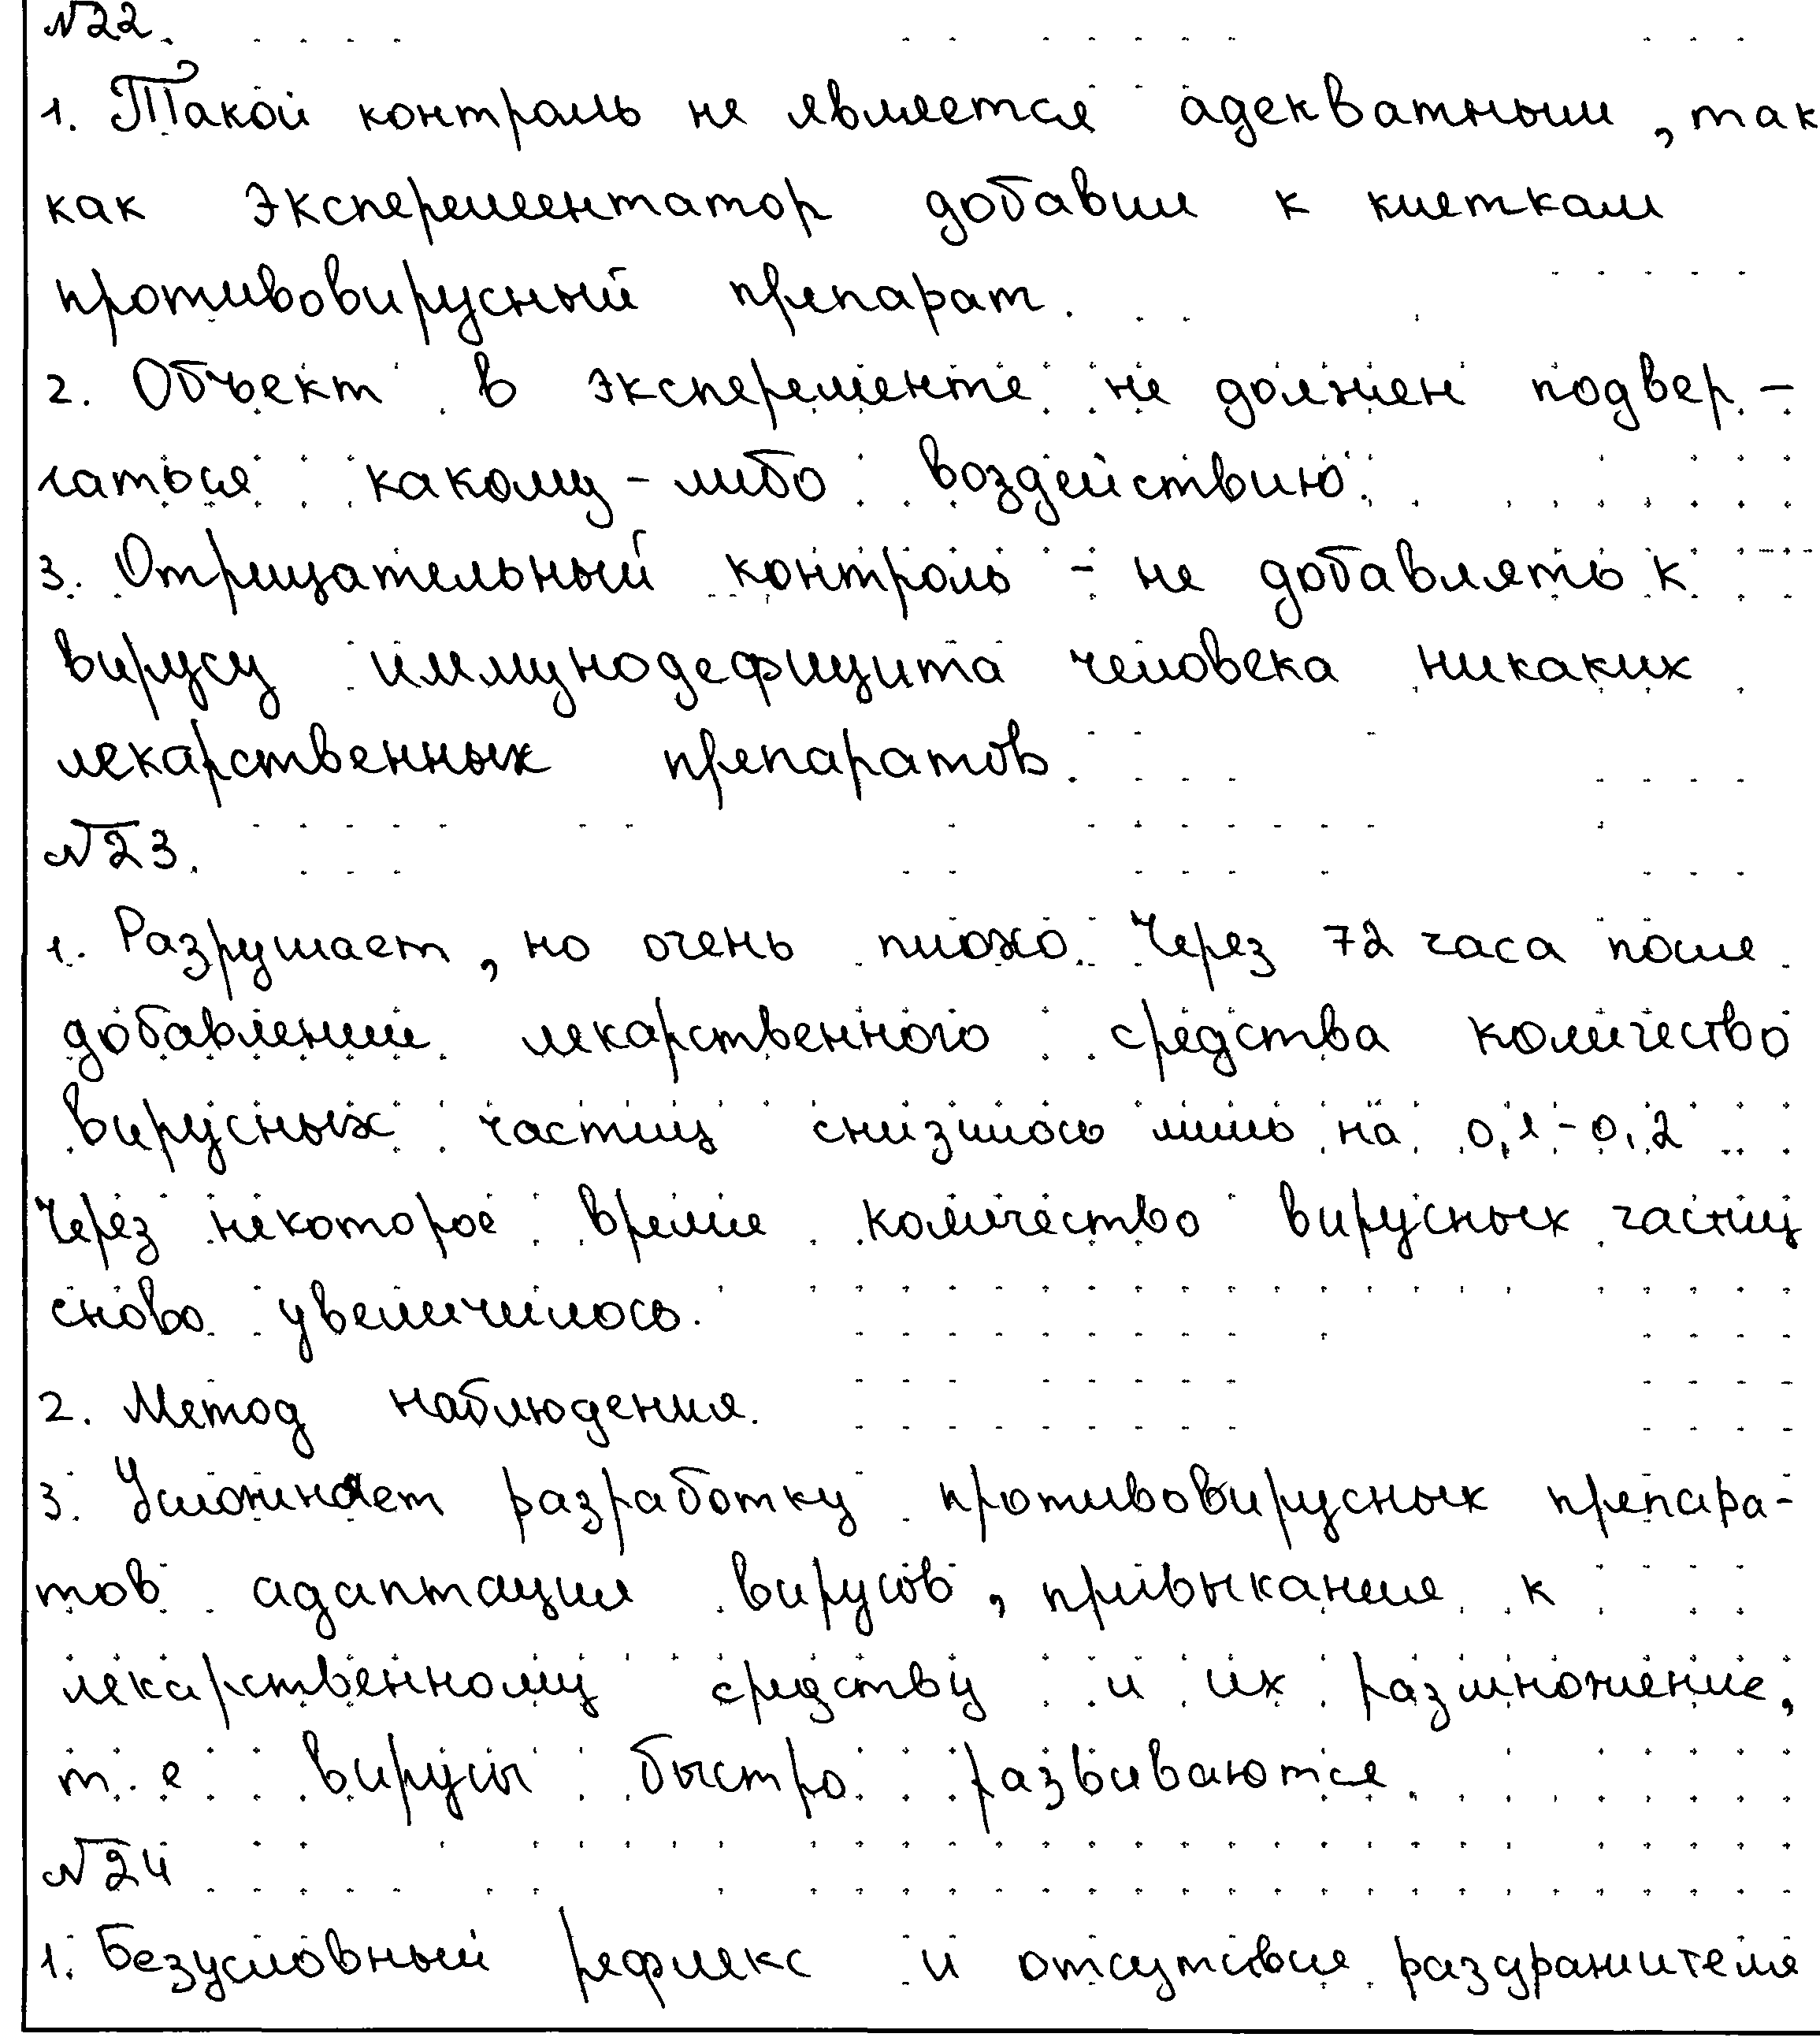 №22.
1. Такой контроль не является адекватным, так
как эксперементатор добавил к клеткам
противовирусный препарат.
2. Объект в эксперементе не должен подвер-
гаться какому-либо воздействию.
3. Отрицательный контроль - не добавлять к
вирусу иммунодефицита человека никаких
лекарственных препаратов.
№23.
1. Разрушает, но очень плохо. Через 72 часа после
добавления лекарственного средства количество
вирусных частиц снизилось лишь на 0,1-0,2
Через некоторое время количество вирусных частиц
снова увеличилось.
2. Метод наблюдения.
3. Усложняет разработку противовирусных препара-
тов адаптация вирусов, привыкание к
лекарственному средству и их размножение,
т.е вирусы быстро развиваются.
№24
1. Безусловный рефлекс и отсутсвие раздражителя